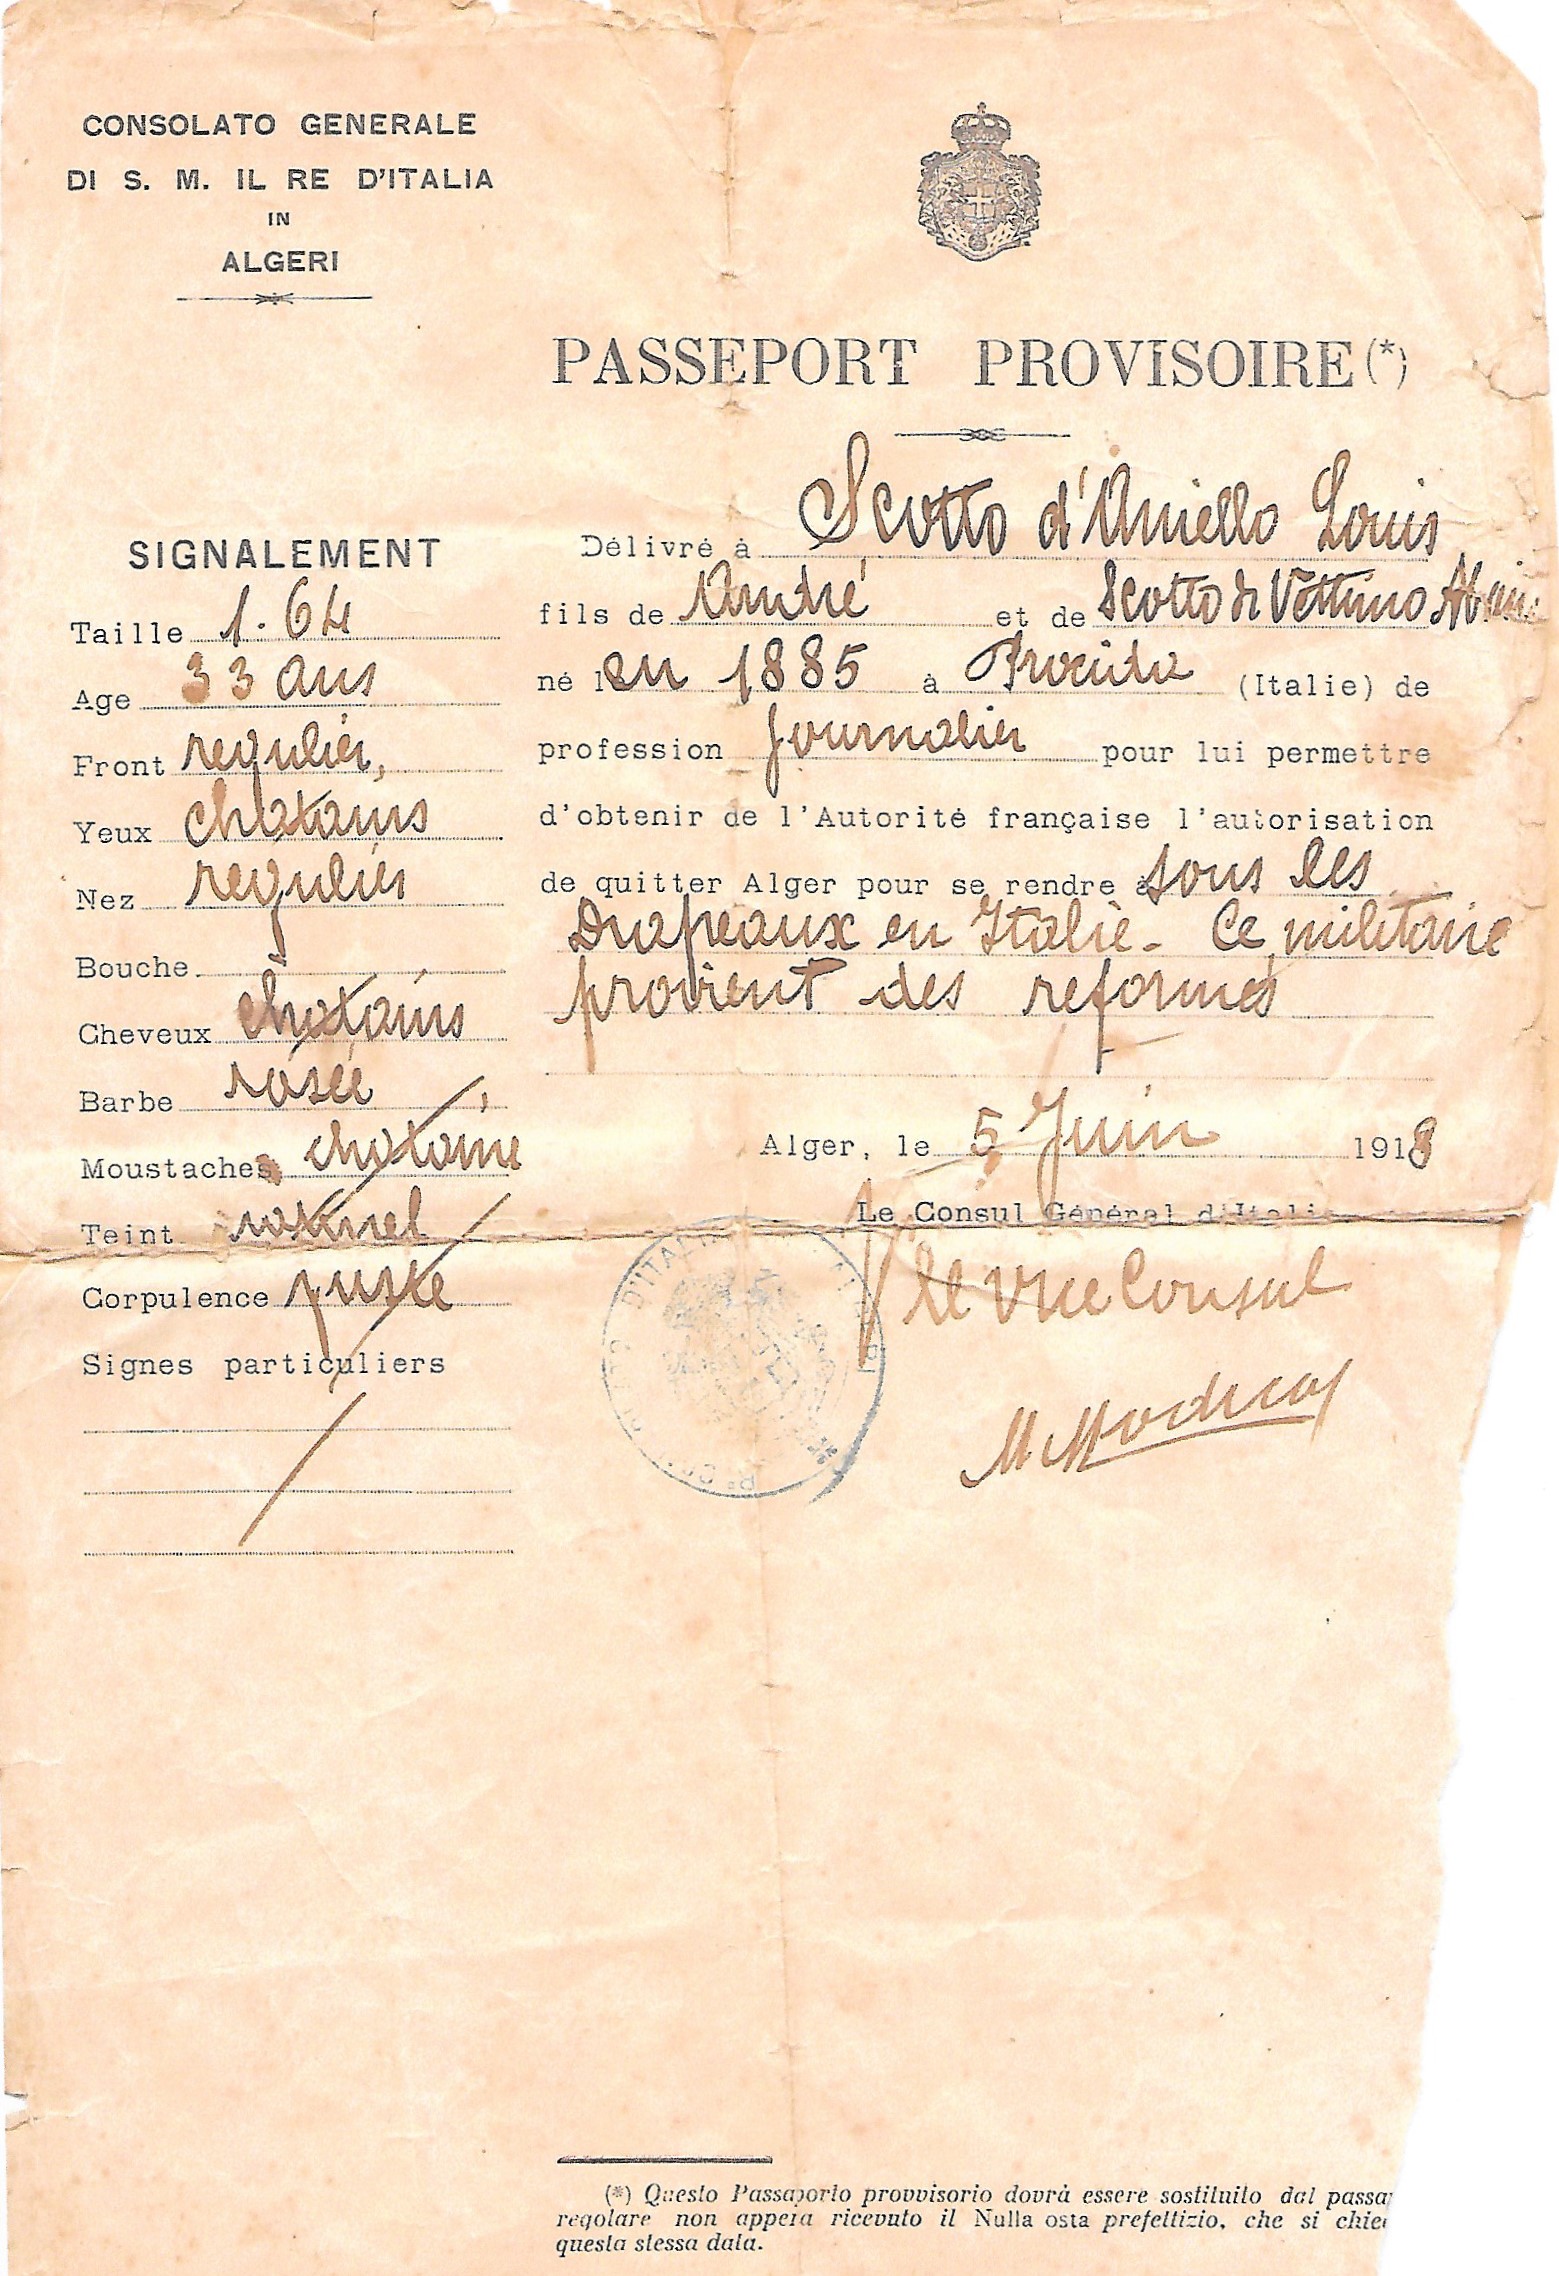 CONSOLATO GENERALE
DI S. M. IL RE D'ITALIA
IN
ALGERI
PASSEPORT PROVISOIRE (*)
SIGNALEMENT
Taille 1.64
Age 33 ans
Front regulier,
Yeux chatains
Nez regulier
Bouche
Cheveux chatains
Barbe rasée
Moustaches chataine
Teint naturel
Corpulence juste
Signes particuliers
Délivré à Scotto d'Aniello Louis
fils de André et de Scotto di Vettimo
né l en 1885 à Procida (Italie) de
profession journalier pour lui permettre
d'obtenir de l'Autorité française l'autorisation
de quitter Alger pour se rendre à sous les
Drapeaux en Italie. Ce militaire
provient des reformés
Alger, le 5 Juin 1918
Le Consul Général d'Itali
Il Vice Consul
(*) Questo Passaporto provvisorio dovrà essere sostituito dal passa
regolare non appena ricevuto il Nulla osta prefettizio, che si chie
questa stessa data.